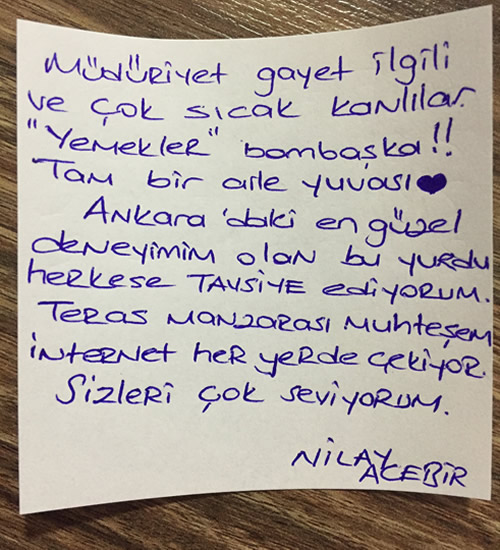 Müdüriyet gayet ilgili
ve çok sıcak kanlılar.
"Yemekler" bombaşka!!
Tam bir aile yuvası♥
Ankara'daki en güzel
deneyimim olan bu yurdu
herkese TAVSİYE ediyorum.
Teras manzarası muhteşem
internet her yerde çekiyor.
Sizleri çok seviyorum.
NİLAY
ACEBİR